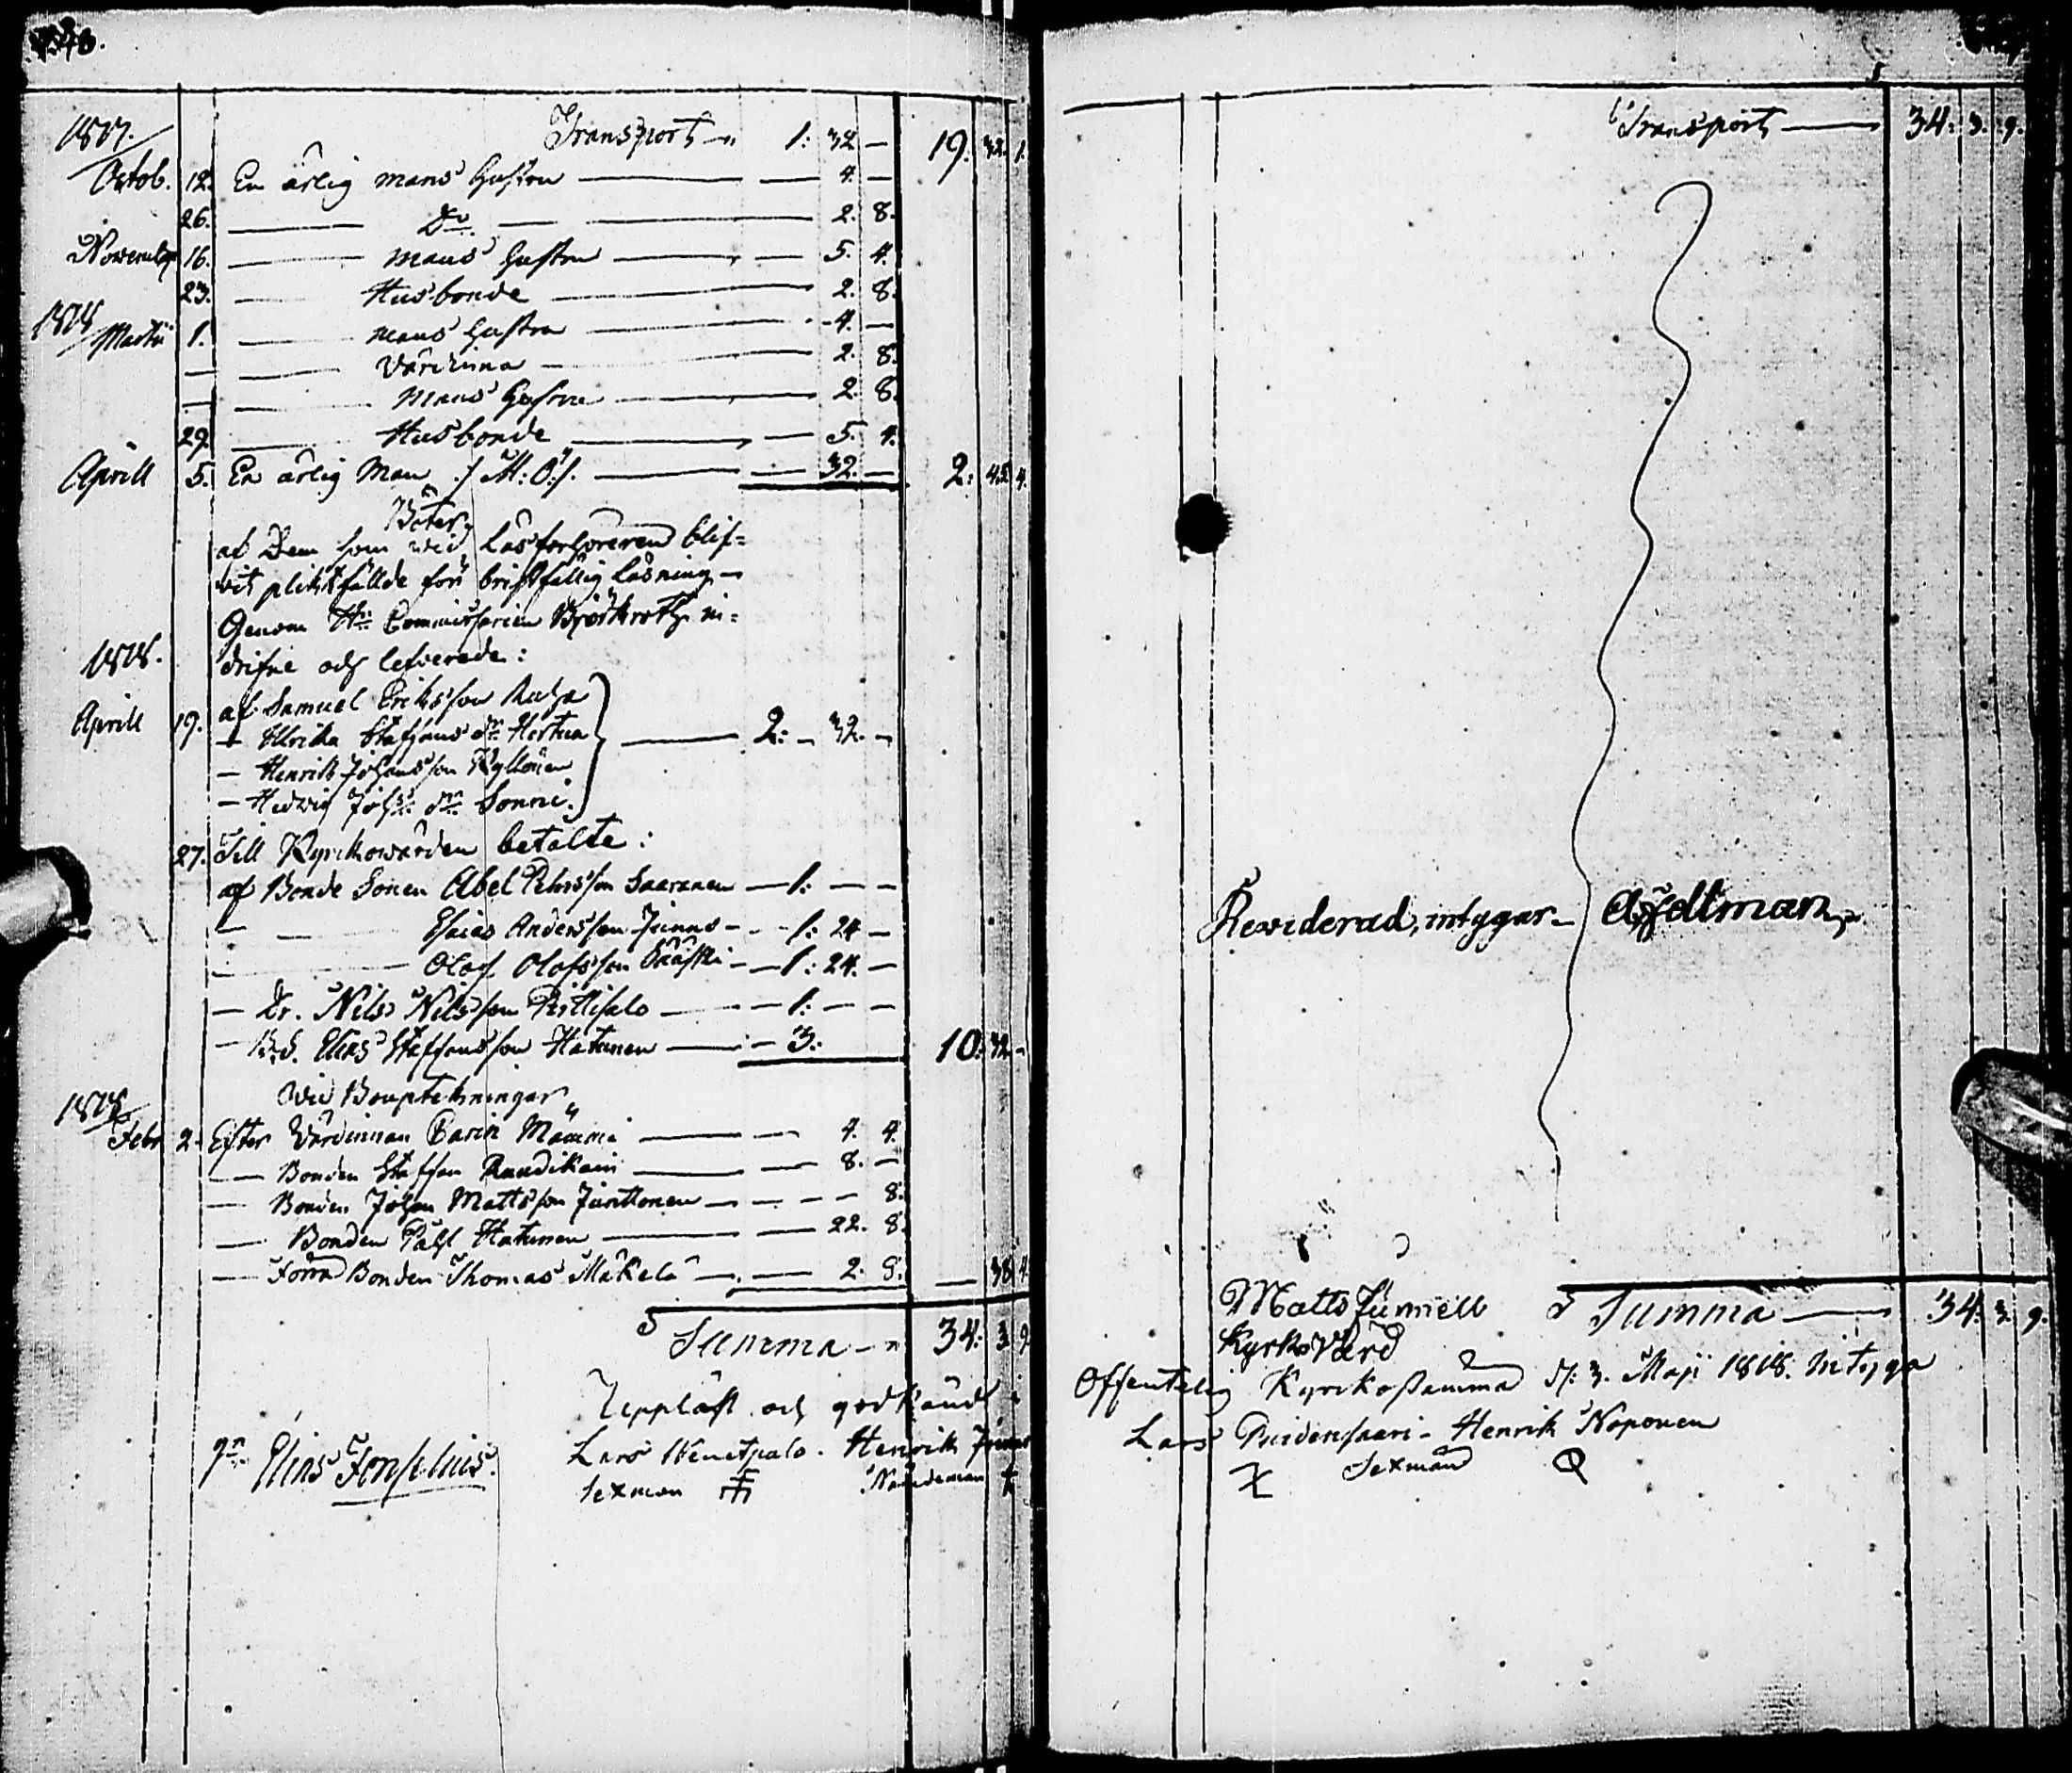 1817. Transport 1: 32 — 19: 32. 1.
Octob. 12. En ärlig mans Hustru — 4. —
26. — Do — 2. 8.
November 16. — mans Hustru — 5. 4.
23. — Husbonde — 2. 8.
1818 Martii 1. — mans Hustru — 4. —
— — Värdinna — 2. 8.
— — mans Hustru — 2. 8.
29. — Husbonde — 5. 4.
Aprill 5. En ärlig Man ./. M: O: /. — 32. — 2: 45 4.
Böter
af Dem som wid Läsförhören blif=
vit pliktfällde för bristfällig läsning —
Genom Hr Commissarien Björkroth in=
1818. drifne och lefvererade:
af Samuel Eriksson
Aprill 19. — Ulrika Staffans dr Hertua — 2: — 32. —
— Henrik Johansson Kyllönen
— Hedvig Johs dr Sonni.
27. Till Kyrkowärden betalte:
af Bonde Sonen Abel Pehrsson Saaranen — 1: — —
— — Esaias Andersson Junno — 1: 24 —
— — Olof Olofsson Sääski — 1: 24. —
— Dr. Nils Nilsson Pirttisalo — 1: — —
— B.S. Elias Staffansson Hatunen — 3: 10: 32. —
wid Bouptekningar
1818 Febr. 2. Efter Värdinnan Carin Mämmi — 4. 4.
— Bonden Staffan — 8. —
— Bonden Johan Mattsson Janttonen — — — 8.
— Bonden Påhl Hatunen — 22. 8.
— Förra Bonden Thomas Mäkelä — 2. 8. — 38 4.
Summa — 34: 3. 9.
Uppläst och godkänd i
Elias Fonselius. Lars Henrik
Sexman Nämdeman
Transport — 34: 3. 9.
Reviderad, intygar —
Matts Junnell Summa — 34. 3. 9.
Kyrko Värd
Offentelig Kyrkostämma d. 3. Maji 1818. intyga
Lars Puidensaari — Henrik Noponen
Sexman